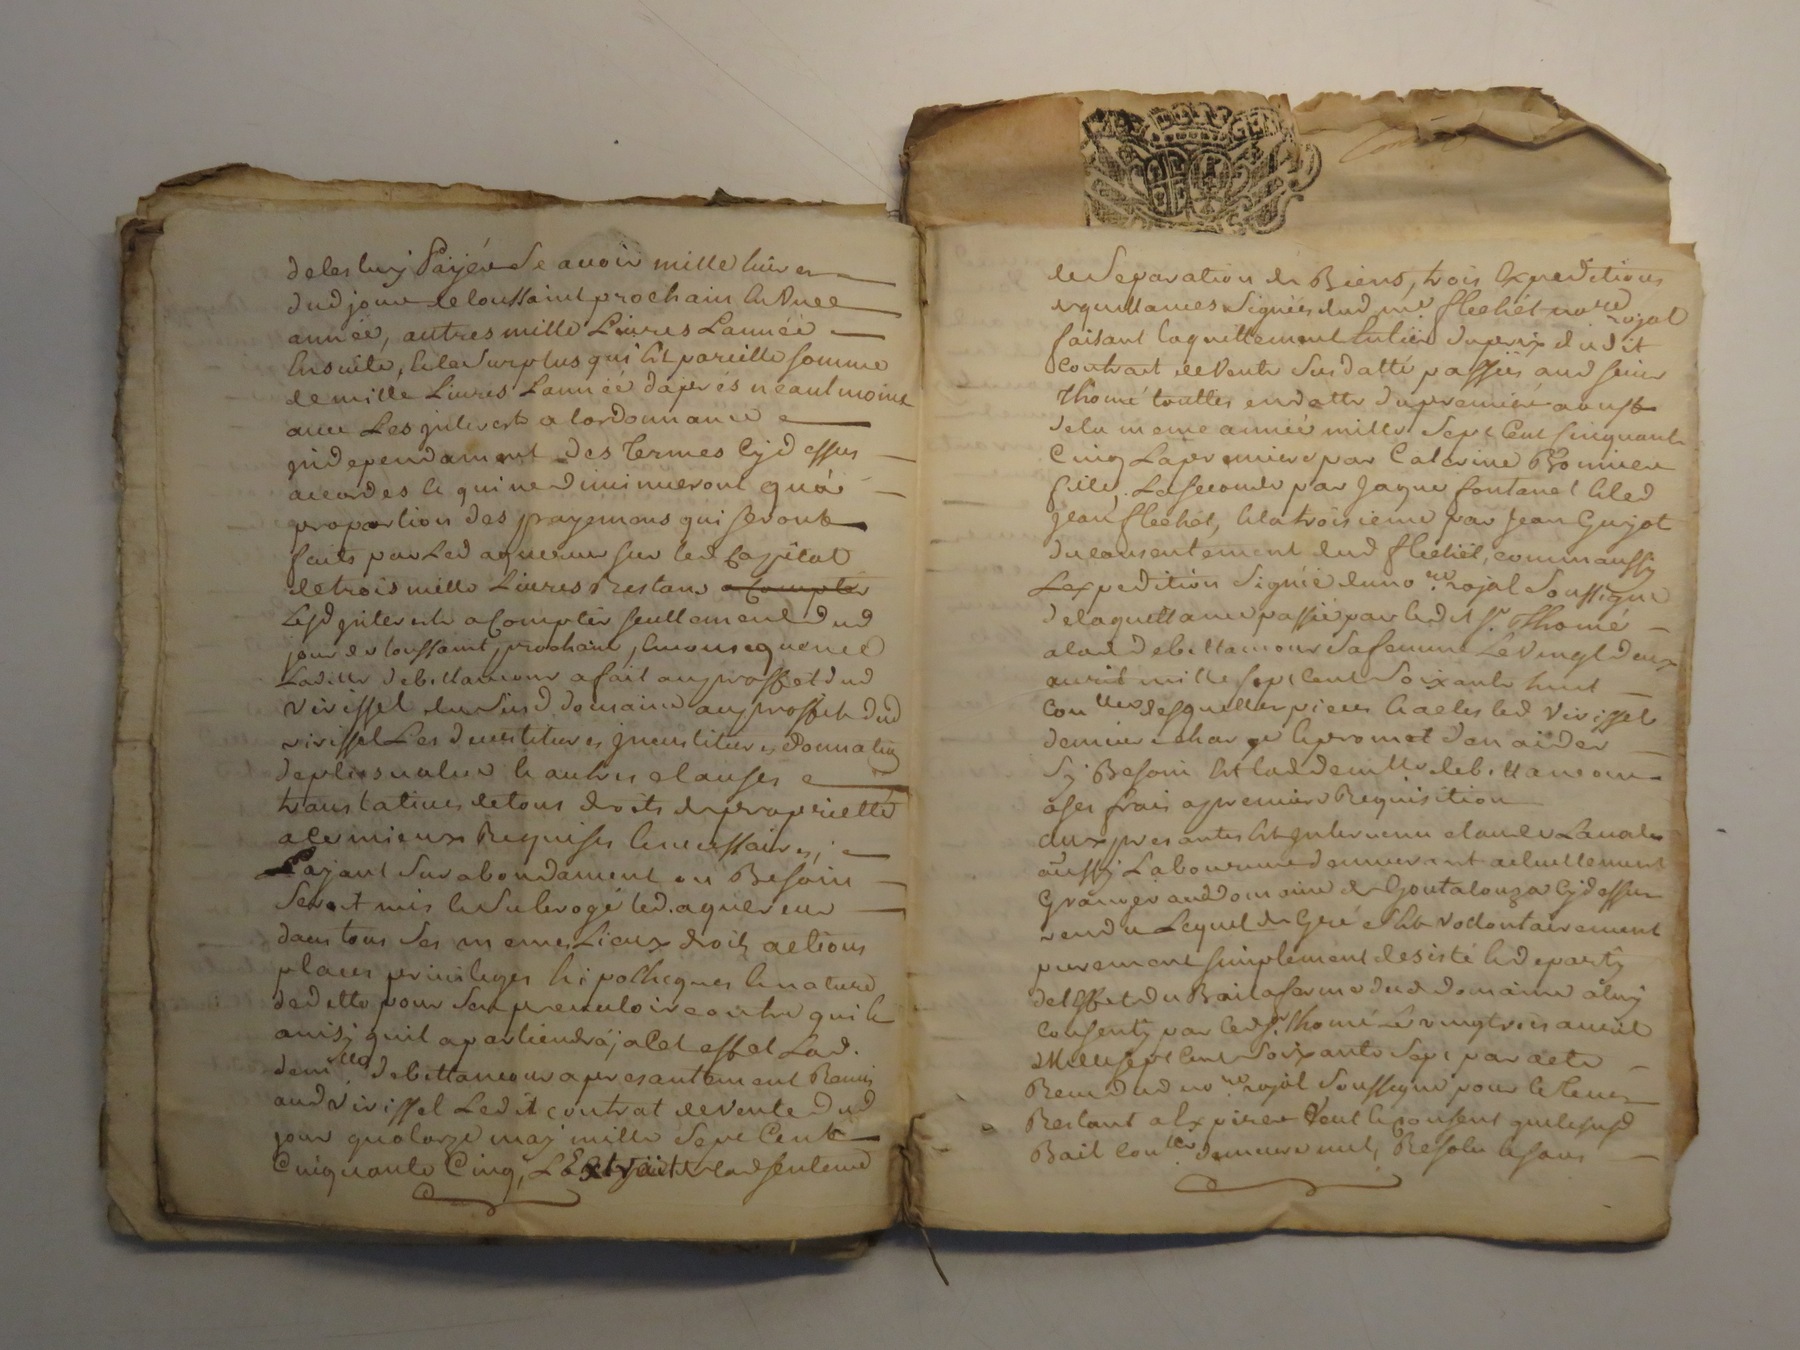 de les luy Payér Se avoir mille livres
dud jour de toussaint prochain En Vnee
année, autres mille Livres Lannéé
Ensuite, Et le Surplus qui Est pareille somme
de mille Livres Lannéé daprés néantmoins
avec Les jnterests a lordonnance
jndependament des Termes Cy dessus
acordes Et qui ne diminueront qu'á
proportion des payemens qui seront
faits par Led aquereur sur led Capital
de trois mille Livres Restans
Lesd jnterests a Compter seullement dud
jour de toussaint prochain, Enconsequence
Lad. debittancour a fait au proffet dud
virissel du Susd domaine au proffit dud
virissel Les devestitures jnvestitures Donnation
de plus value Et autres clauses
translatives de tous droits de proprietté
a ce mieux Requises Et necessaires,
Layant Surabondament ou Besoin
Seroit mis Et Subrogé led. aquereur
dans tous Ses memes Lieux droits actions
places privileges hipotheques Et nature
de dette pour Sen prevaloir contre qui Et
ainsy quil apartiendrá, a Cet effet Lad.
demlle debittancour a presantement Remis
aud virissel Ledit contrat de Vente dud
jour quatorze may mille Sept Cent
Cinquante Cinq, LExtrait de lad sentence
de Separation de Biens, trois Expeditions
de quittances Signées dud me. flechét nore Rojal
faisant Laquittement Entier du prix du dit
Contrat de Vente Susdatté passées aud sieur
Thomé touttes en datte du premier aoust
de la meme année mille Sept Cent Cinquante
Cinq La premiere par Caterine Bonnier
fille, La Seconde par Jaque fontanel Et led
jean flechét, Et la troisieme par Jean Guyot
du consentement dud flechét, comm aussy
Lexpedition Signéé du nore. rojal Soussigné
de laquittance passéé par ledit Sr. Thomé
a lad debittancour Sa femme Le Vingt deux
avril mille Sept Cent Soixante huit
Conlles desquelles pieces Et actes led Virissel
demeure chargé Et promet den aider
Sy Besoin Est lad demlle debittancour
a ses frais a premiere Requisition
aux presantes Est jntervenu claude Lavalé
aussy Laboureur demeurant actuellement
Granger aud domaine de Cy dessus
vendu Lequel de Gré sest vollontairement
purement simplement desisté Et departy
de Leffet du Bail a ferme dud domaine a luy
Consenty par led Sr. Thomé Le vingt trois avril
Mille Sept Cent Soixante Sept par acte
Recu dud nore rojal Soussigné pour le tems
Restant a Expirer Veut Et consent que le susd
Bail Conler. demeure nul, Resolu Et sans